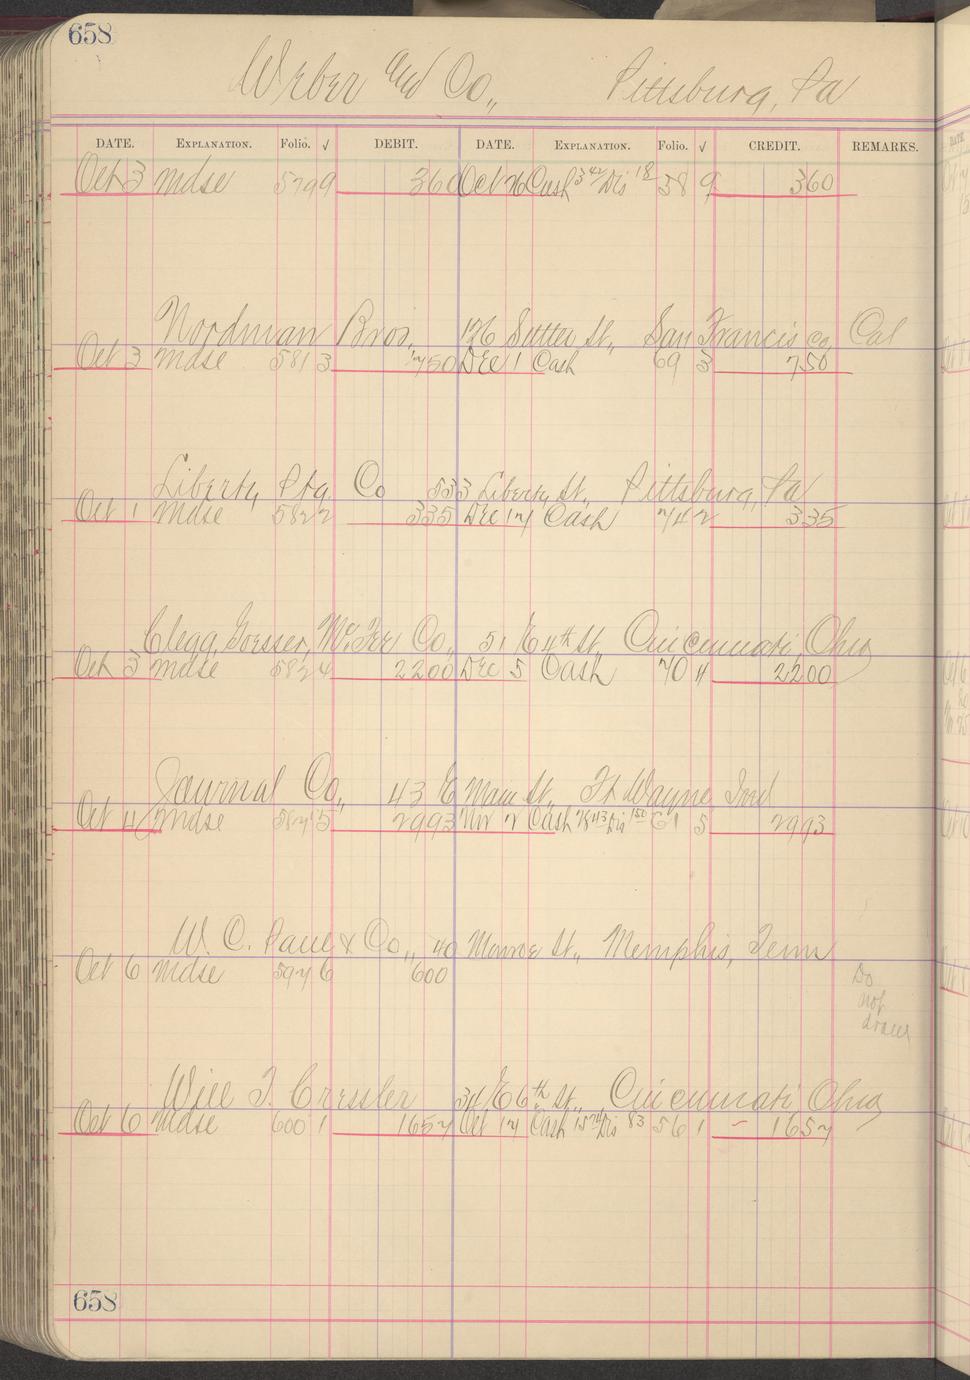 658
Weber and Co., Pittsburg, Pa
DATE. EXPLANATION. Folio. √ DEBIT. DATE. EXPLANATION. Folio. √ CREDIT. REMARKS.
Oct 3 Mdse 579 9 360 Oct 26 Cash 3 42 Dis 18 58 9 360
Nordman Bros., 126 Sutter St., San Francisco, Cal
Oct 3 Mdse 581 3 750 Dec 1 Cash 69 3 750
Liberty Ptg Co 533 Liberty St., Pittsburg, Pa
Oct 1 Mdse 582 2 335 Dec 17 Cash 74 2 335
Clegg, Goesser, Co., 51 E 4th St, Cincinnati, Ohio
Oct 3 Mdse 582 4 2200 Dec 5 Cash 70 4 2200
Journal Co., 43 E Main St., Ft Wayne Ind
Oct 4 Mdse 587 5 2993 Nov 2 Cash 28 43 Dis 150 61 5 2993
W. C. Paul & Co., 40 Monroe St., Memphis, Tenn
Oct 6 Mdse 597 6 600
Do
not
draw
Will J. Cressler 34 E 6th St., Cincinnati, Ohio
Oct 6 Mdse 600 1 1657 Oct 17 Cash 15 74 Dis 83 56 1 1657
658